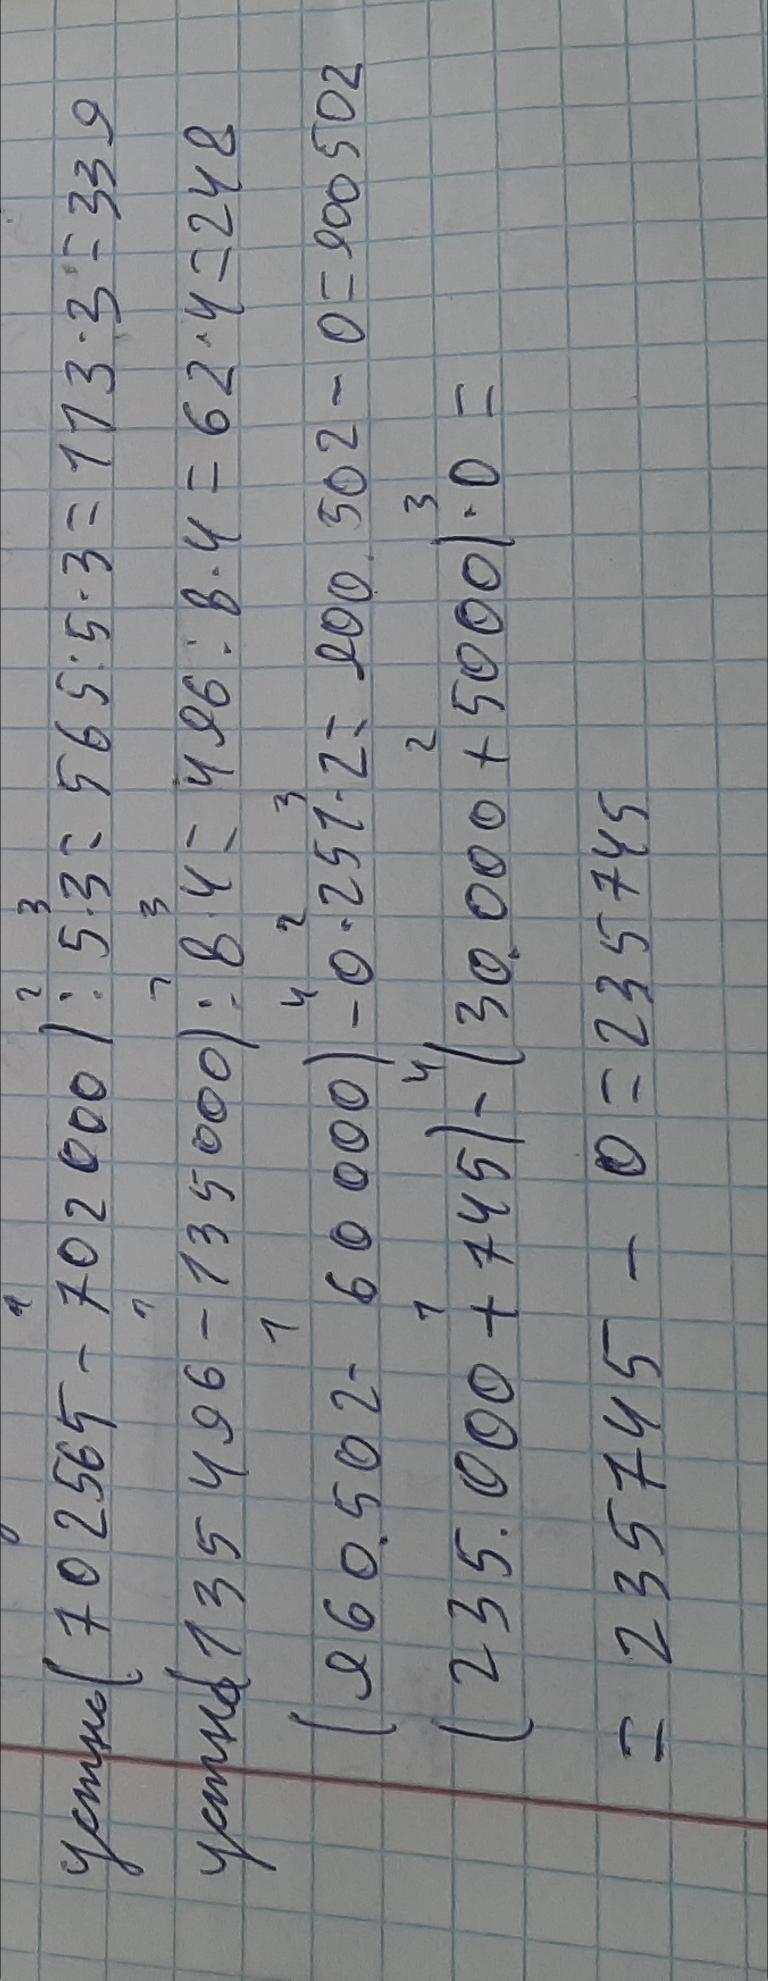 устно (702565 - 702000) : 5 · 3 = 565 : 5 · 3 = 113 · 3 = 339
устно (135496 - 135000) : 8 · 4 = 496 : 8 · 4 = 62 · 4 = 248
(960.502 - 60000) - 0 · 251 · 2 = 900.502 - 0 = 900502
(235.000 + 745) - (30.000 + 5000) · 0 =
= 235745 - 0 = 235745